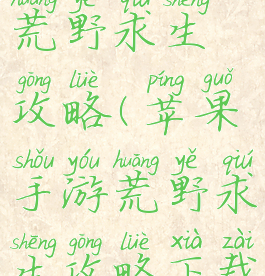 huāng yě qiú shēng
荒野求生
gōng lüè píng guǒ
攻略(苹果
shǒu yóu huāng yě qiú
手游荒野求
shēng gōng lüè xià zài
生攻略下载